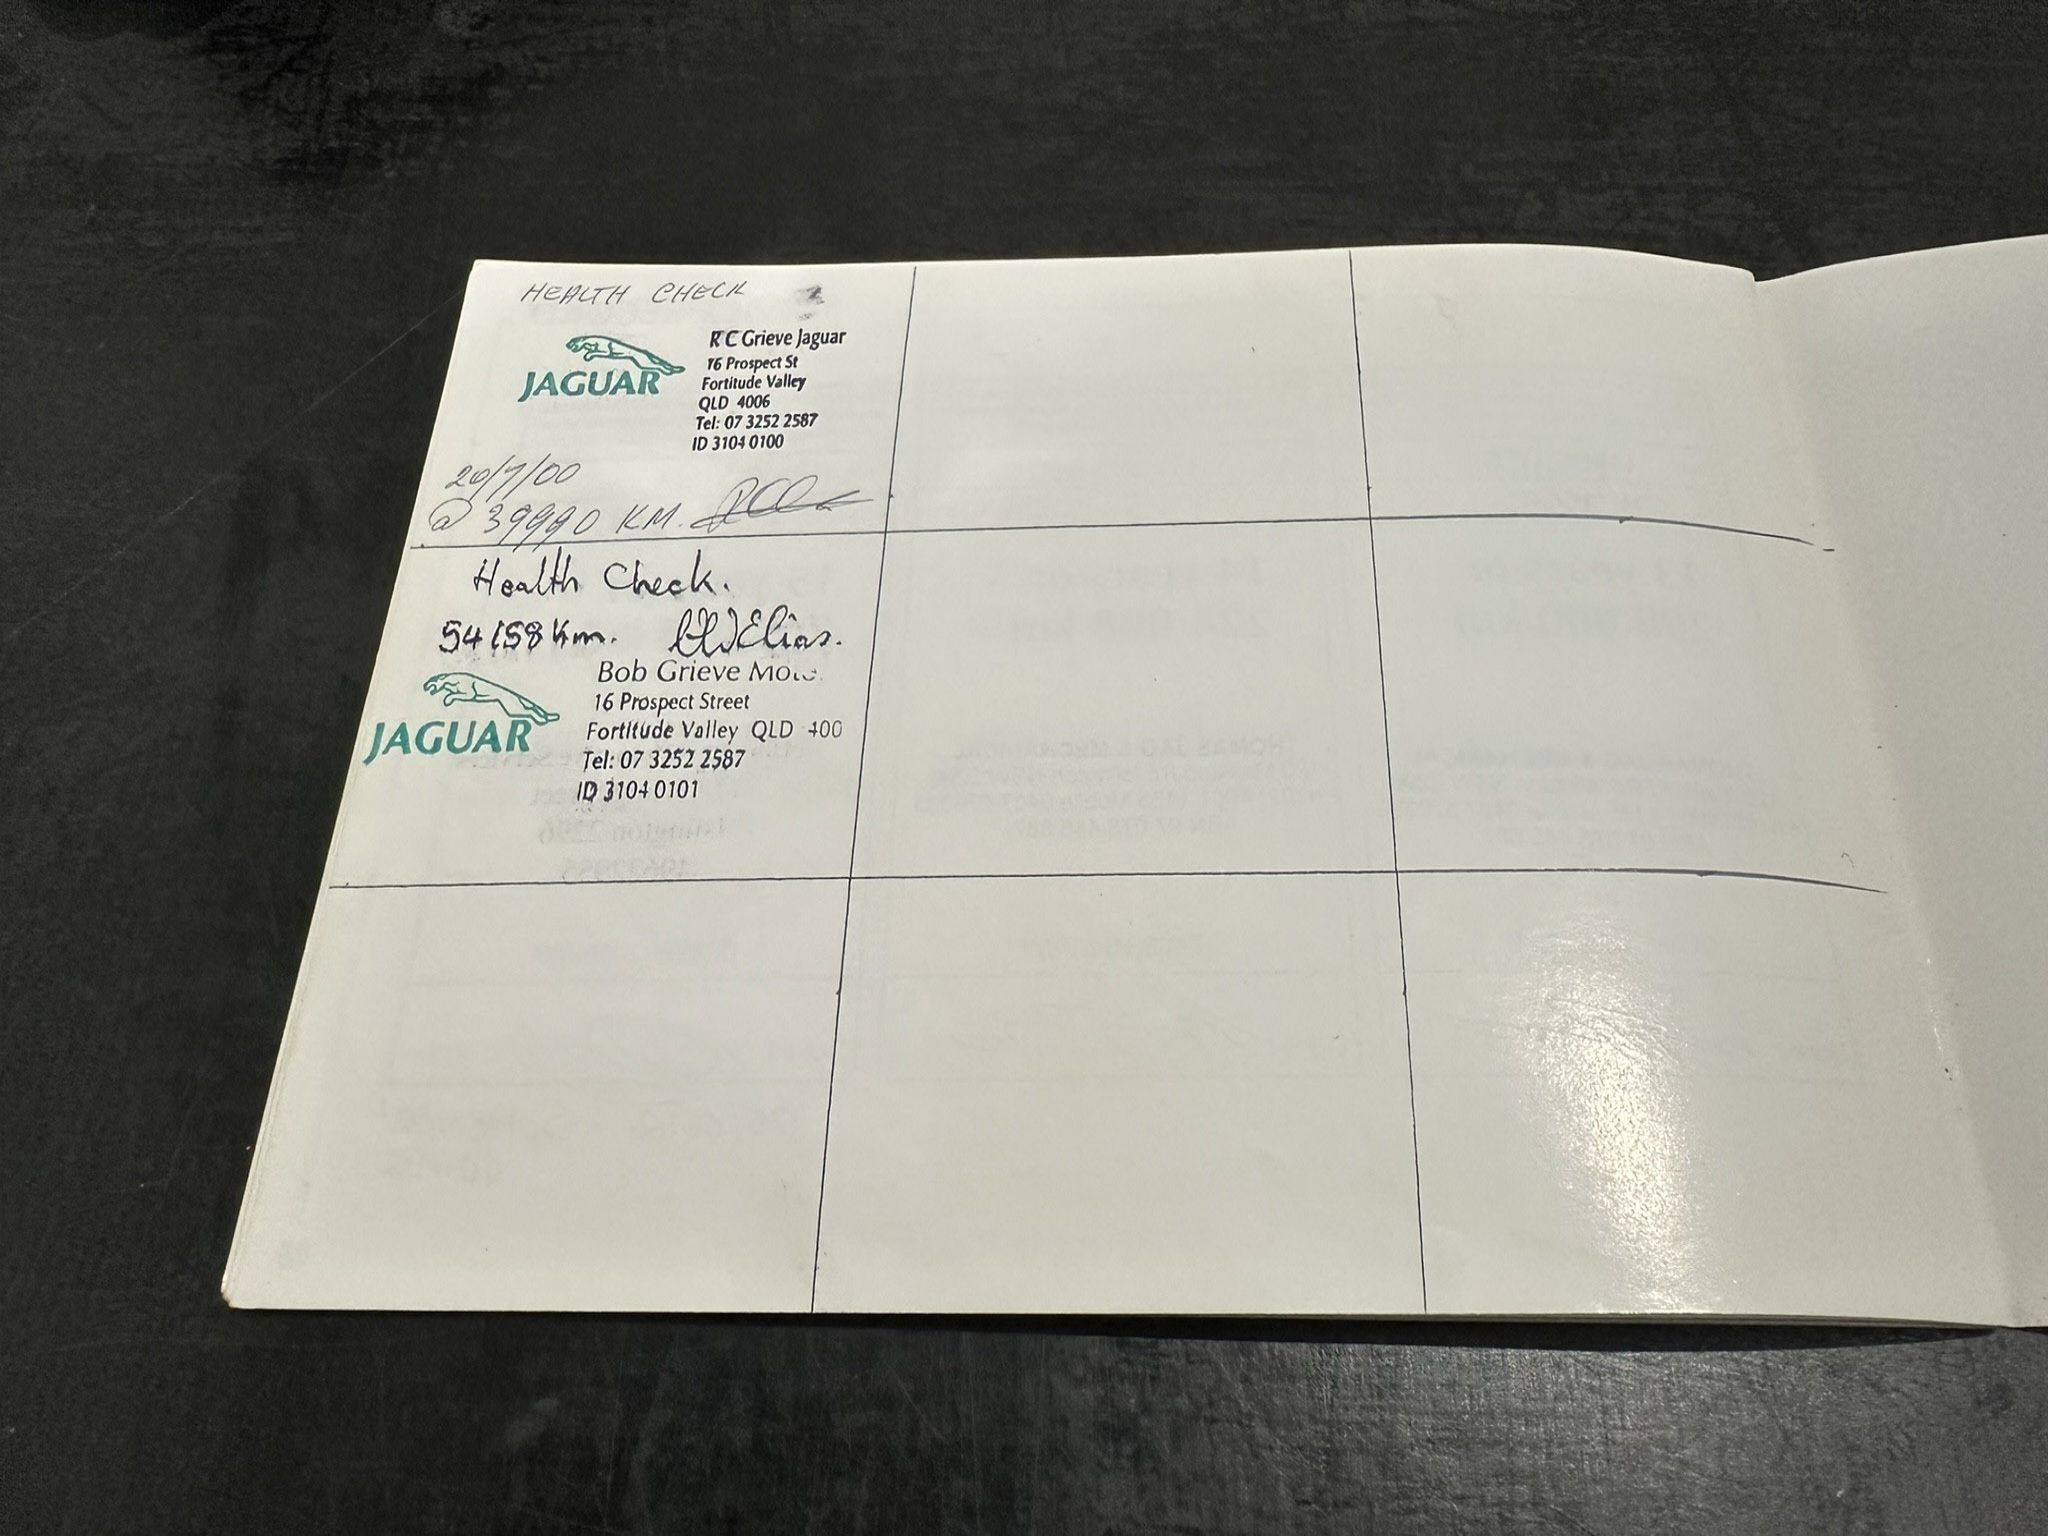 HEALTH CHECK
JAGUAR
R C Grieve Jaguar
16 Prospect St
Fortitude Valley
QLD 4006
Tel: 07 3252 2587
ID 3104 0100
20/7/00
@ 39990 KM.
Health Check.
54158 Km.
Bob Grieve
16 Prospect Street
Fortitude Valley QLD 400
JAGUAR
Tel: 07 3252 2587
ID 3104 0101